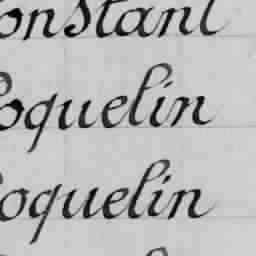 onstant
oquelin
oquelin